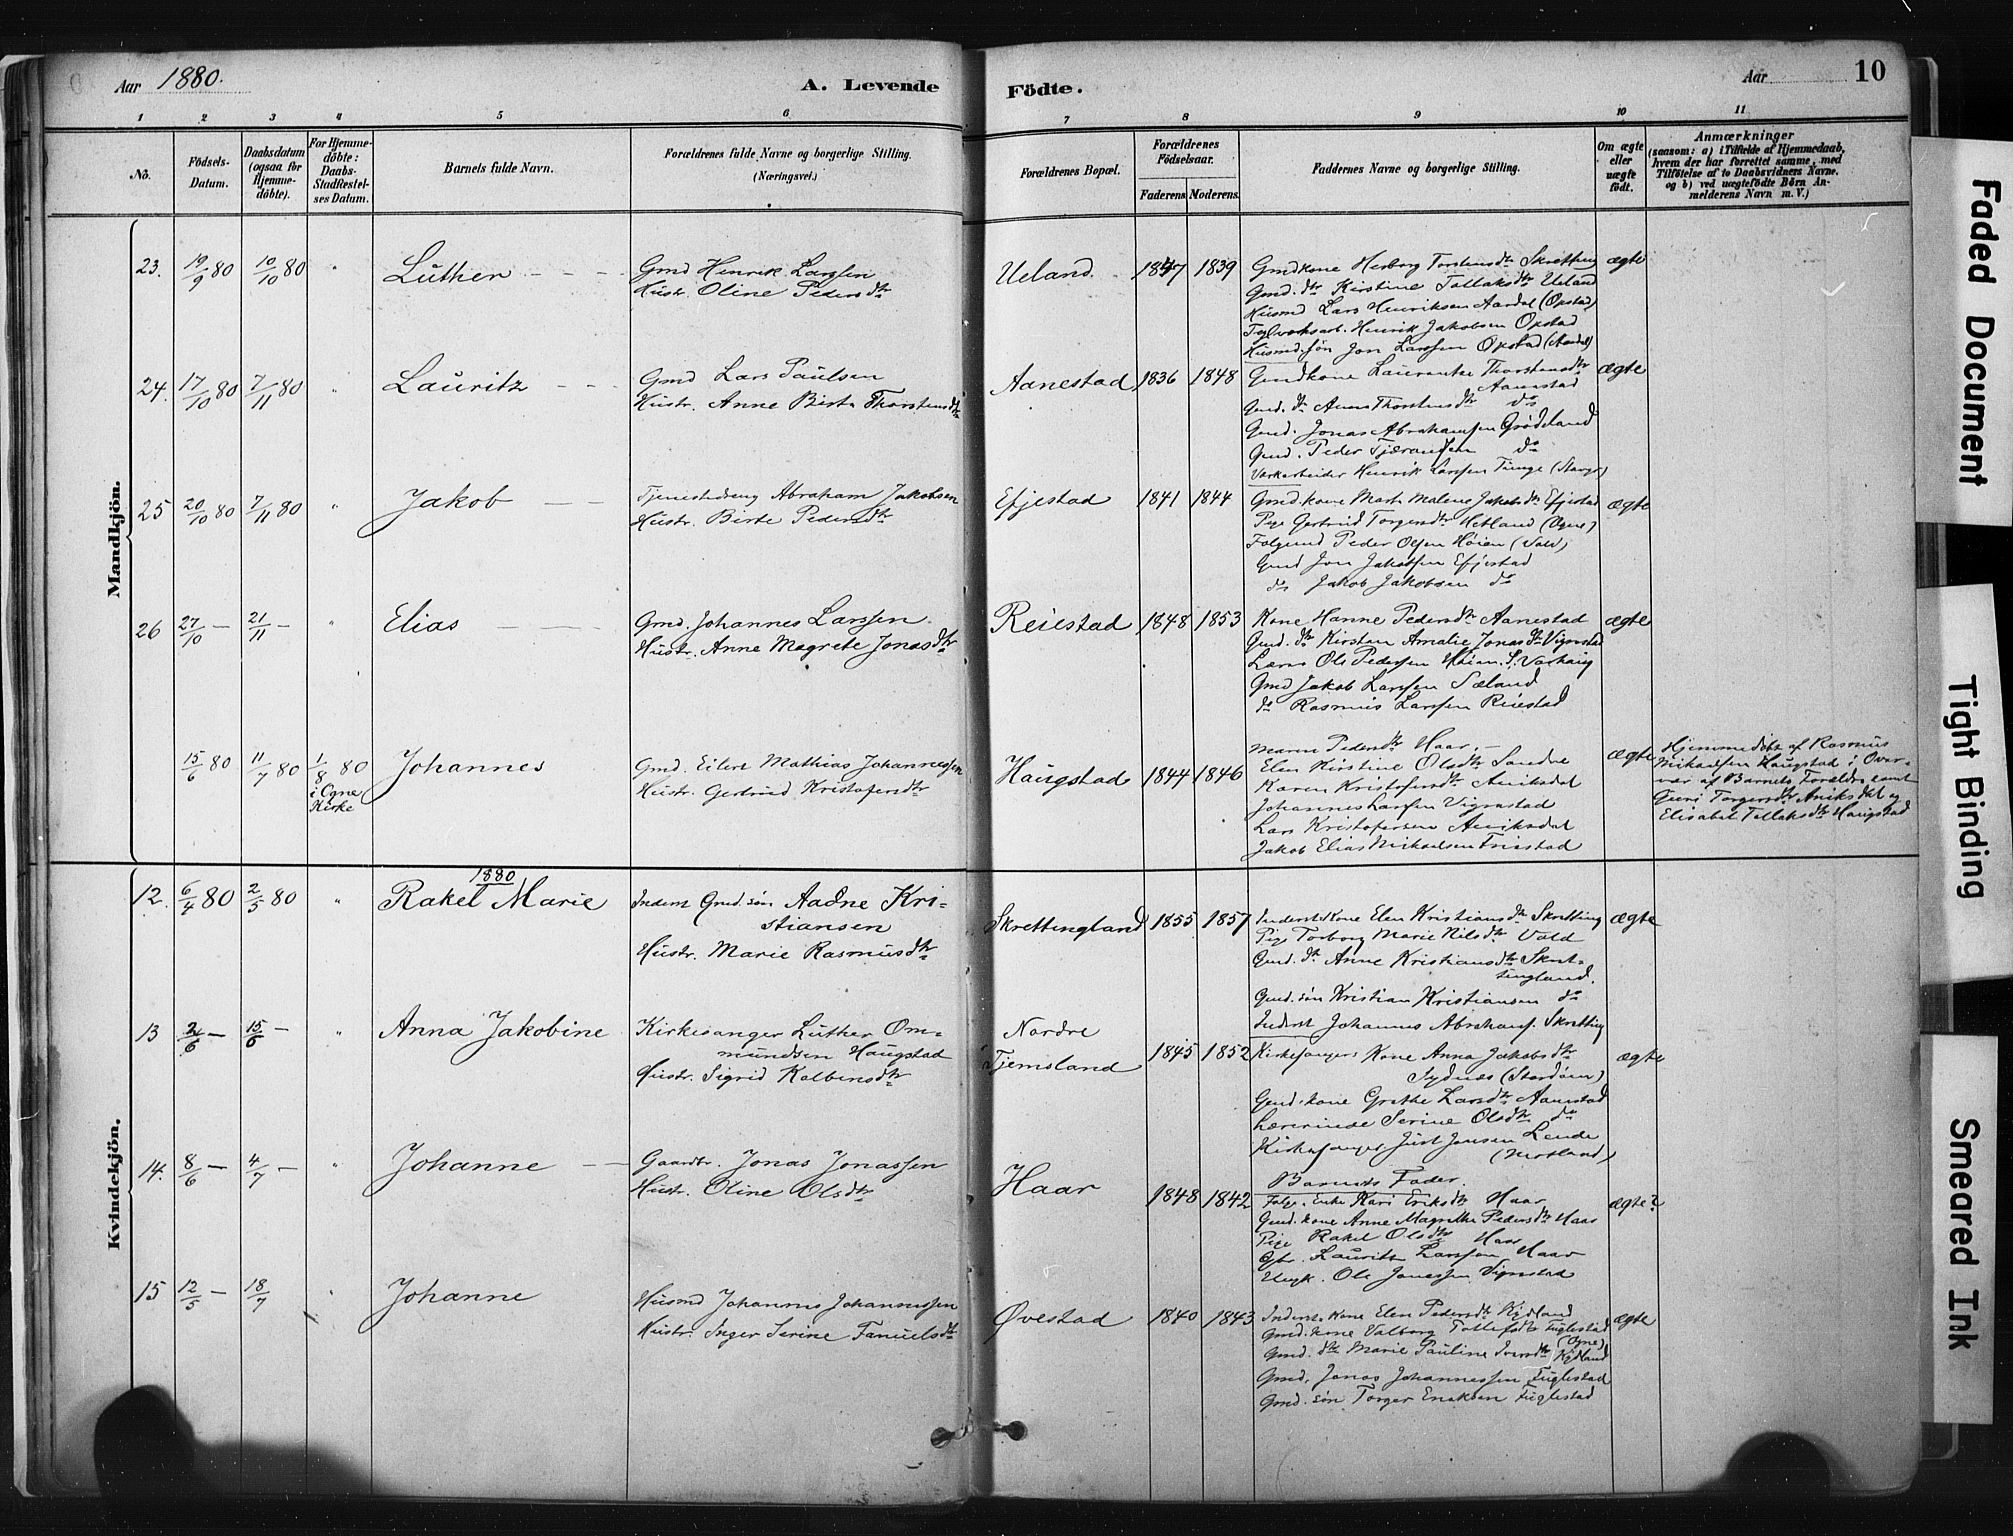 Aar 1880.
A. Levende
Födte.
Aar
10
1 2 3 4 5 6 7 8 9 10 11
No.
Födsels-
Datum.
Daabsdatum
(ogsaa for
Hjemme-
döbte).
For Hjemme-
döbte:
Daabs-
Stadfæstel-
ses Datum.
Barnets fulde Navn.
Forældrenes fulde Navne og borgerlige Stilling.
(Næringsvei.)
Forældrenes Bopæl.
Forældrenes
Födselsaar.
Faderens. Moderens.
Faddernes Navne og borgerlige Stilling.
Om ægte
eller
uægte
født.
Anmærkninger
(saasom: a) i Tilfælde af Hjemmedaab,
hvem der har forrettet samme, med
Tilföielse af to Daabsvidners Navne.
og b) ved uægtefödte Börn An-
melderens Navn m. V.)
Mandkjön.
23. 19/9 80 10/10 80 " Luther
Gmd Henrik Larssen
Hustr. Oline Pedersdtr
Ueland. 1847 1839
Gmdkone Herborg Torstensdtr Skretting
Gmd. dtr Kirstine Tollaksdtr Ueland
Husmd Lars Henriksen Aardal (Opstad)
Teglverksarb. Henrik Jakobsen Opstad
Husmd. søn Jon Larssen Opstad (Aardal)
ægte
24. 17/10 80 7/11 80 " Lauritz
Gmd Lars Paulsen
Hustr. Anne Birte Thorstensdtr
Aanestad 1836 1848
Gmdkone Laurentse Thorstensdtr
Aanestad
Gmd. dtr Anna Thorstensdtr do
Gmd. Jonas Abrahamsen Grødeland
Gmd. Peder Tjæransen do
Værkarbeider Henrik Larssen Tunge (Stavgr)
ægte
25 20/10 80 7/11 80 " Jakob
Tjenestedreng Abraham Jakobsen
Hustr. Birte Pedersdtr
Efjestad 1841 1844
Gmd. kone Marta Malene Jakobsdtr Efjestad
Pige Gertrud Torgersdtr Hetland (Ogne)
Folgmd Peder Olsen Høien (Vold)
Gmd Jon Jakobsen Efjestad
do Jakob Jakobsen do
ægte
26 27/10 — 21/11 — " Elias
Gmd. Johannes Larssen.
Hustr. Anne Magrete Jonasdtr
Reiestad 1848 1853
Kone Hanne Pedersdtr Aanestad
Gmd. dtr Kirsten Amalie Jonasdtr Vigrestad
Lærer Ole Pedersen Høien. S. Varhaug
Gmd Jakob Larssen Sæland
do Rasmus Larssen Reiestad
ægte
15/6 80 11/7 80 1/8 80
i Ogne
Kirke
Johannes
Gmd. Eilert Mathias Johannessen
Hustr. Gertrud Kristofersdtr
Haugstad 1844 1846
Maren Pedersdtr Haar. —
Elen Kirstine Olsdtr Søndre
Karen Kristofersdtr Aniksdal
Johannes Larssen Vigrestad
Lars Kristofersen Aniksdal
Jakob Elias Mikaelsen Friestad
ægte
Hjemmedøbt af Rasmus
Mikaelsen Haugstad i Over-
vær af Barnets Forældre samt
Guri Torgersdtr Aniksdal og
Elisabet Tollaksdtr Haugstad
Kvindekjön.
1880
12. 6/4 80 2/5 80 " Rakel Marie
Inderst Gmd. søn Aadne Kri-
stiansen
Hustr. Marie Rasmusdtr
Skrettingland 1855 1857
Inderst. Kone Elen Kristiansdtr Skretting
Pige Torborg Marie Nilsdtr Vold
Gmd. dtr Anne Kristiansdtr Skret-
tingland.
Gmd. søn Kristian Kristiansen do
Inderst Johannes Abrahams. Skretting
ægte
13 2/6 — 15/6 — " Anna Jakobine
Kirkesanger Luther Om-
mundsen Haugstad
Hustr. Sigrid Kolbensdtr
Nordre
Tjemsland 1845 1852
Kirkesangers Kone Anna Jakobsdtr
Sydnæs (Stordøen)
Gmd. kone Grethe Larsdtr Aanestad
Lærerinde Serine Olsdtr do
Kirkesanger Just Jonsen Lende
Barnets Fader.
ægte
14. 8/6 — 4/7 — " Johanne
Gaardbr. Jonas Jonassen
Hustr. Oline Olsdtr
Haar 1848 1842
Folge. Enke Kari Eriksdtr Haar
Gmd. kone Anne Magrethe Pedersdtr Haar
Pige Rakel Olsdtr Haar
Gbr. Laurits Larssen Haar
Ungk. Ole Jonassen Vigrestad
ægte
15 12/5 — 18/7 " Johanne
Husmd Johannes Johannessen
Hustr. Inger Serine Tanuelsdtr
Øvestad 1840 1843
Inderst. Kone Elen Pedersdtr Kydland
Gmd. kone Valborg Tollefsdtr Fuglestad
(Ogne)
Gmd. dtr Marie Pauline Iversdtr Kydland
Gmd. Jonas Johannessen Fuglestad
Gmd. søn Torger Enoksen Fuglestad
ægte
Faded Document
Tight Binding
Smeared Ink